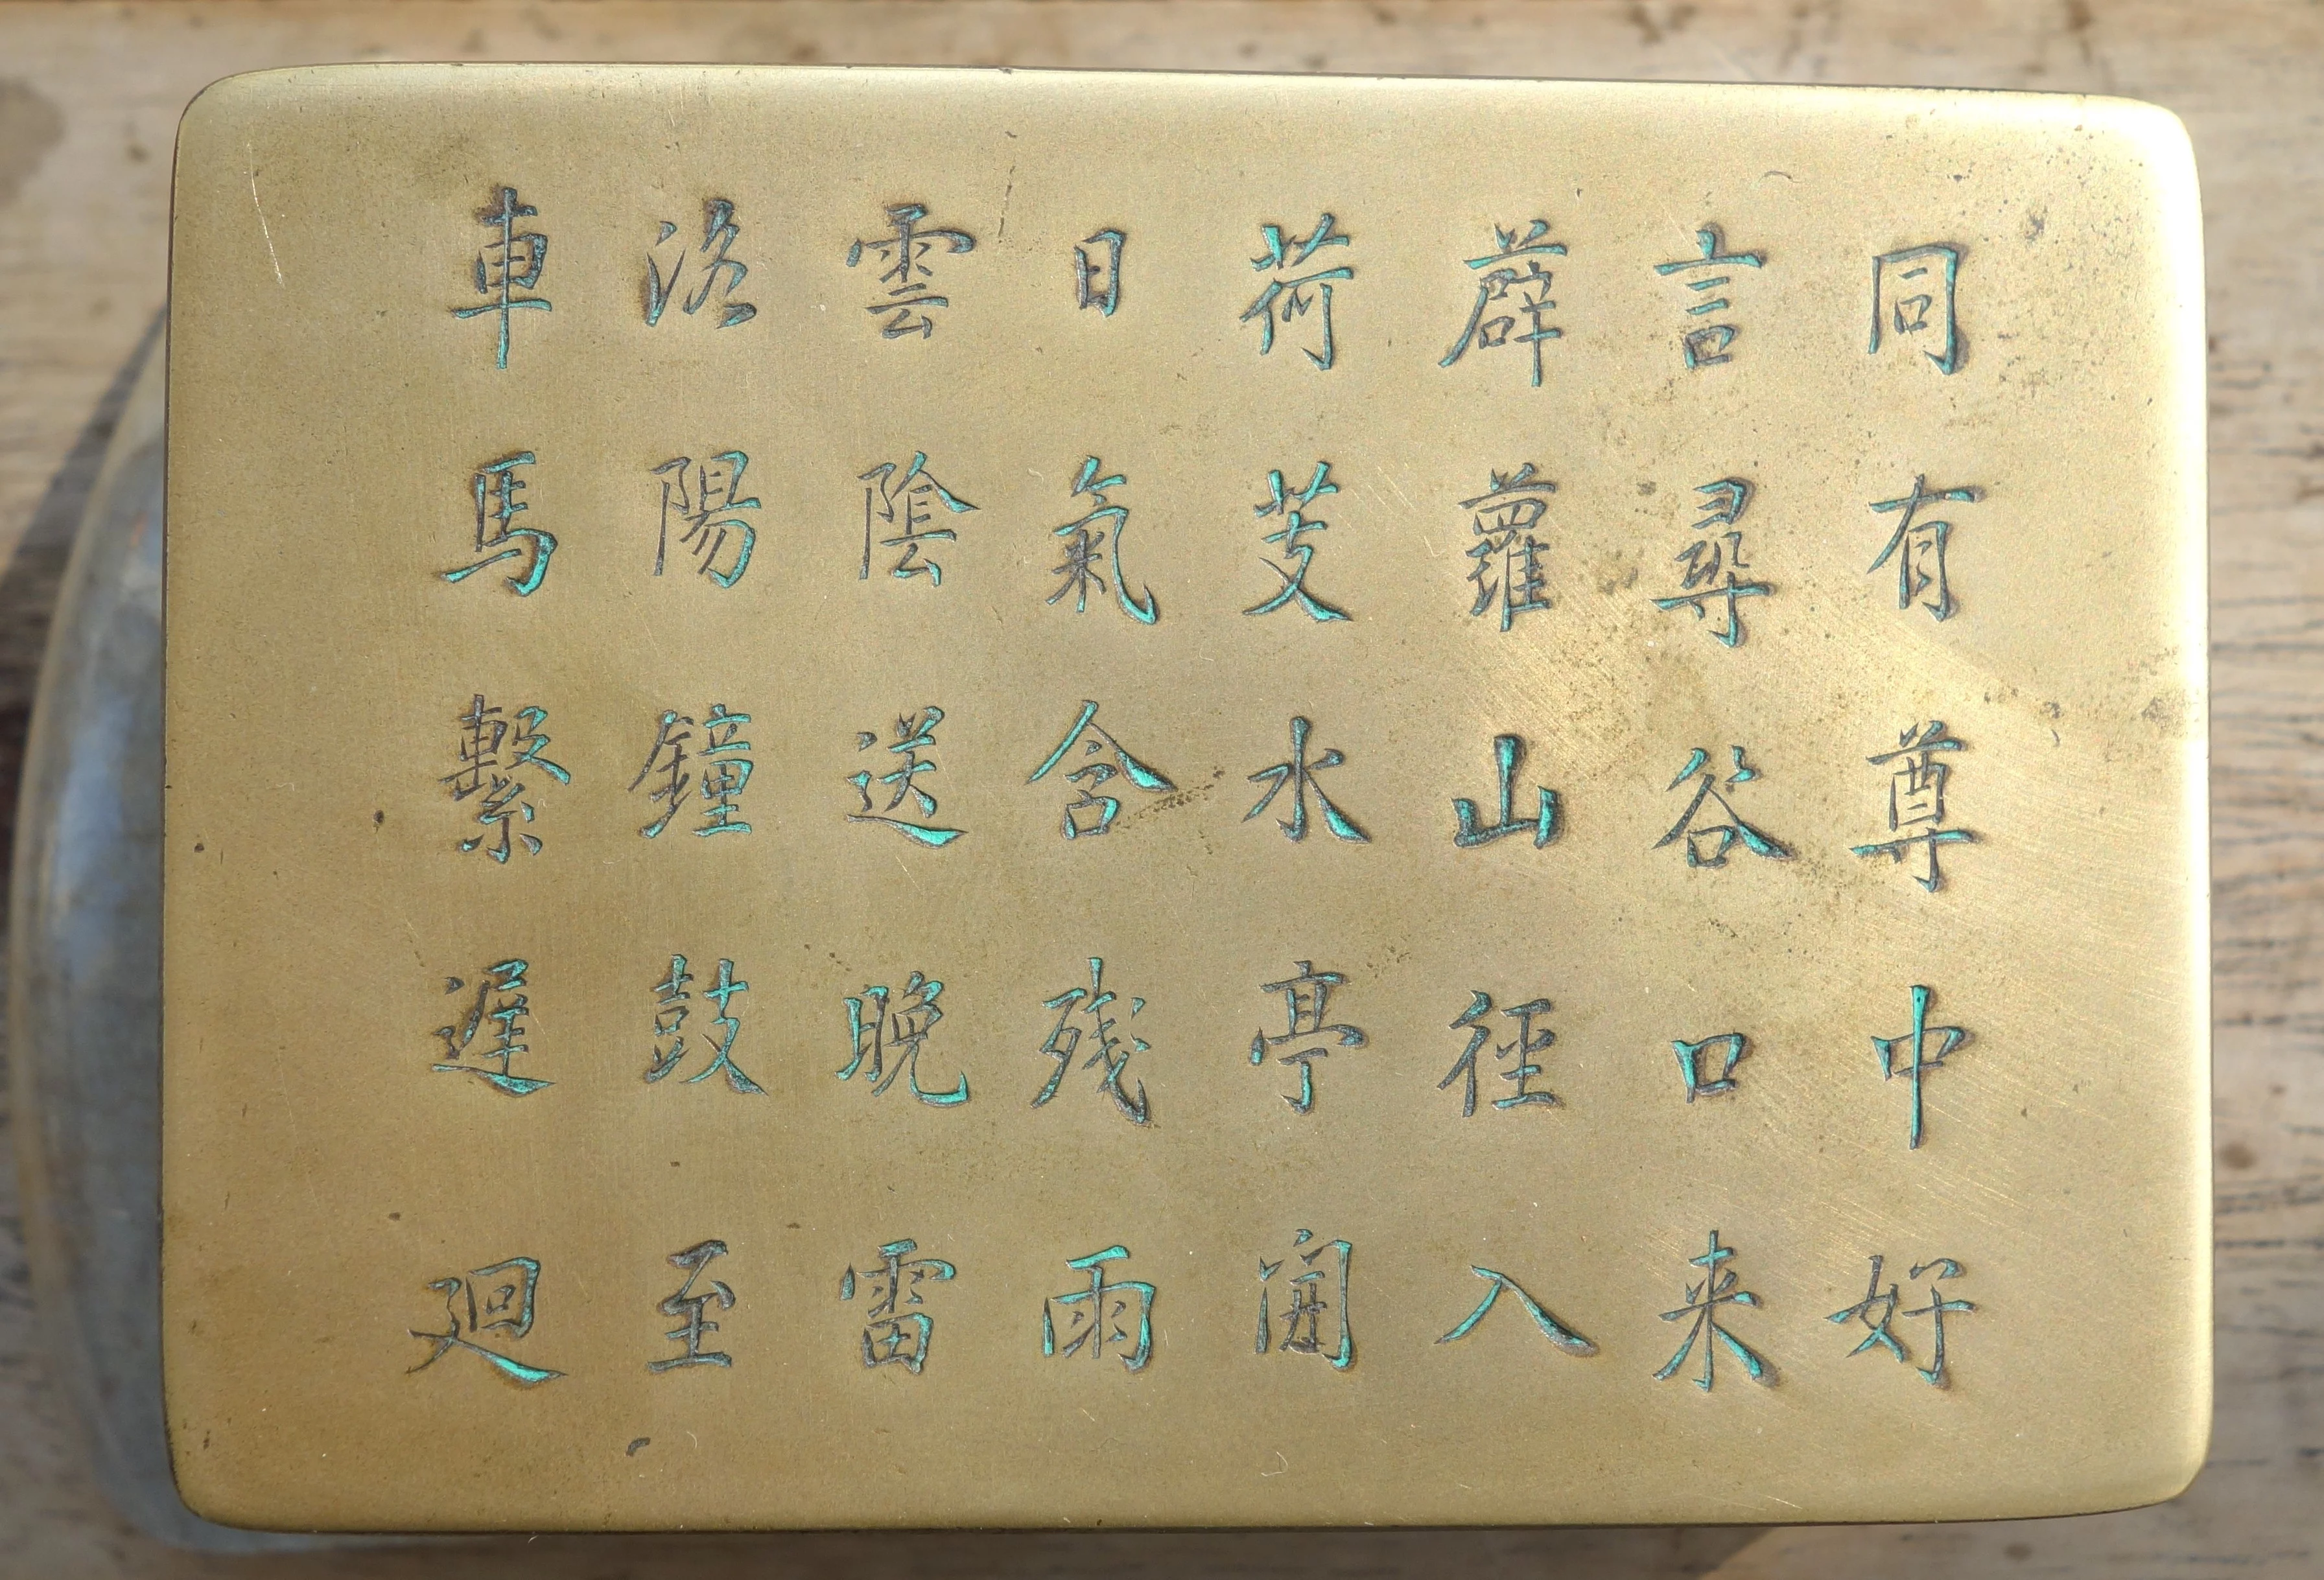 同有尊中好
言尋谷口来
薜蘿山徑入
荷芰水亭開
日氣含残雨
雲陰送晚雷
洛陽鐘鼓至
車馬繫遲迴